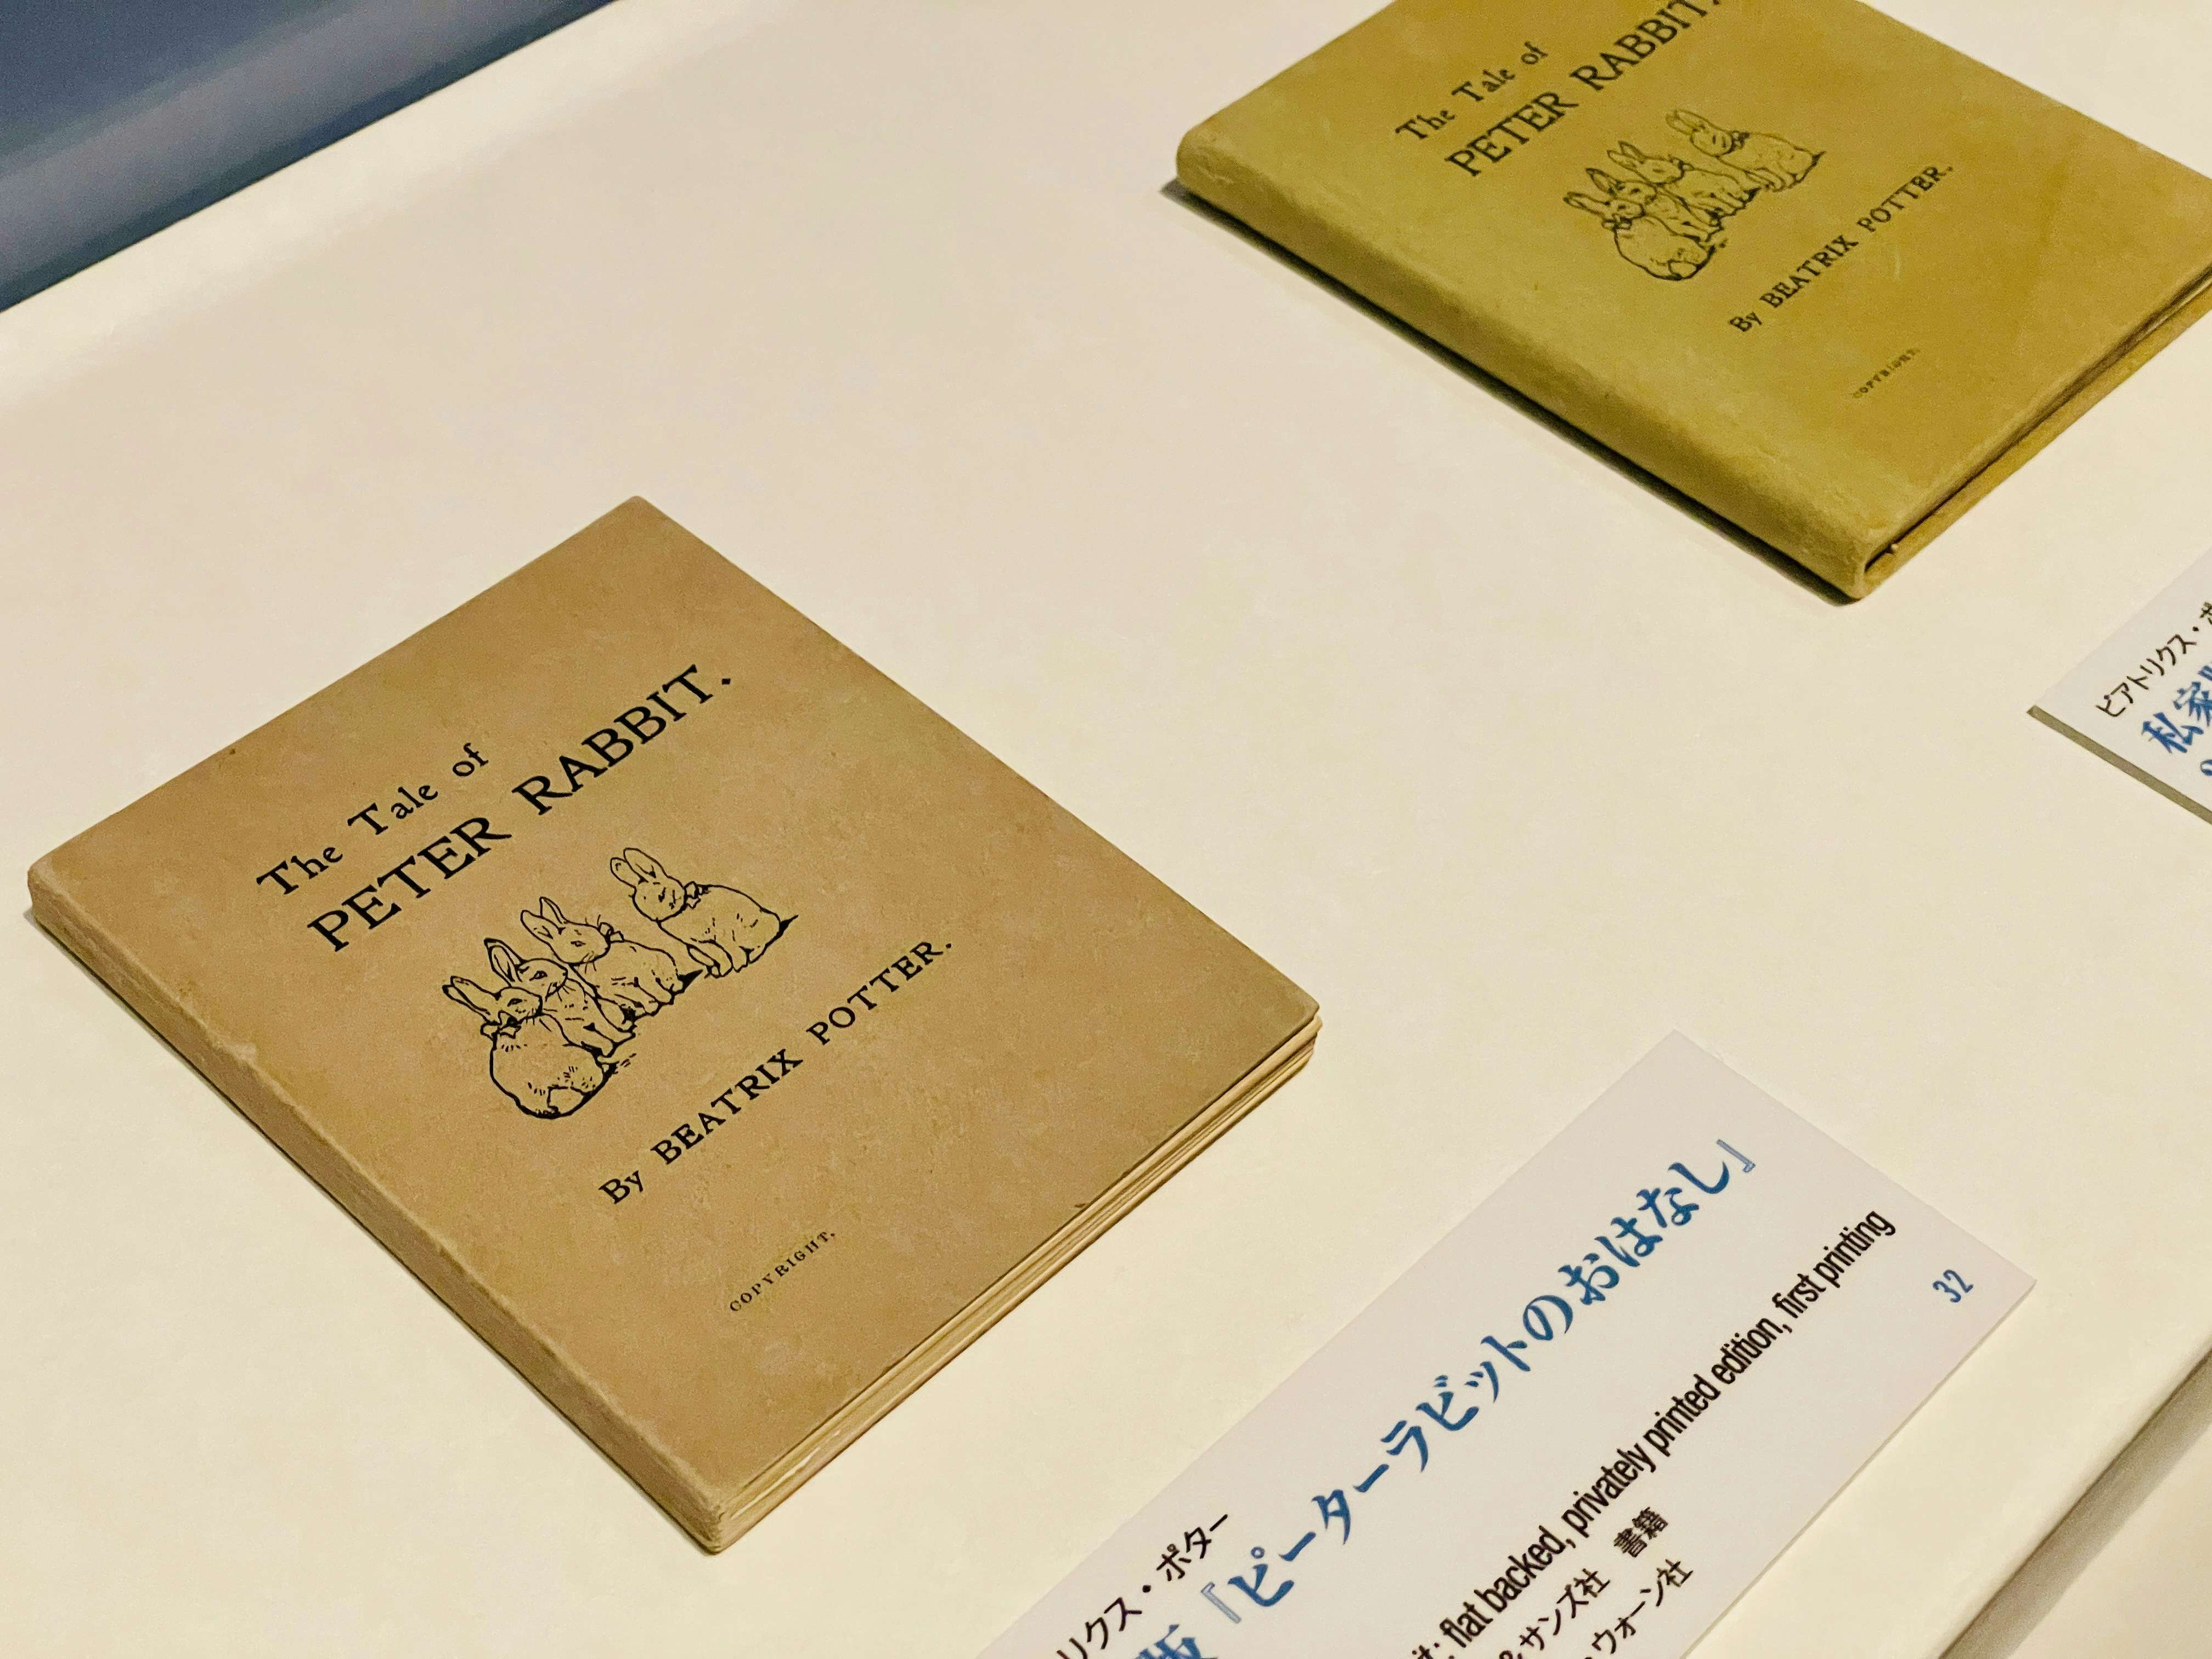 The Tale of
PETER RABBIT.
By BEATRIX POTTER.
COPYRIGHT.
The Tale of
PETER RABBIT.
By BEATRIX POTTER.
COPYRIGHT.
ビアトリクス・ポ
私家
リクス・ポター
版『ピーターラビットのおはなし』
flat backed, privately printed edition, first printing
& サンズ社 書籍
ウォーン社
32